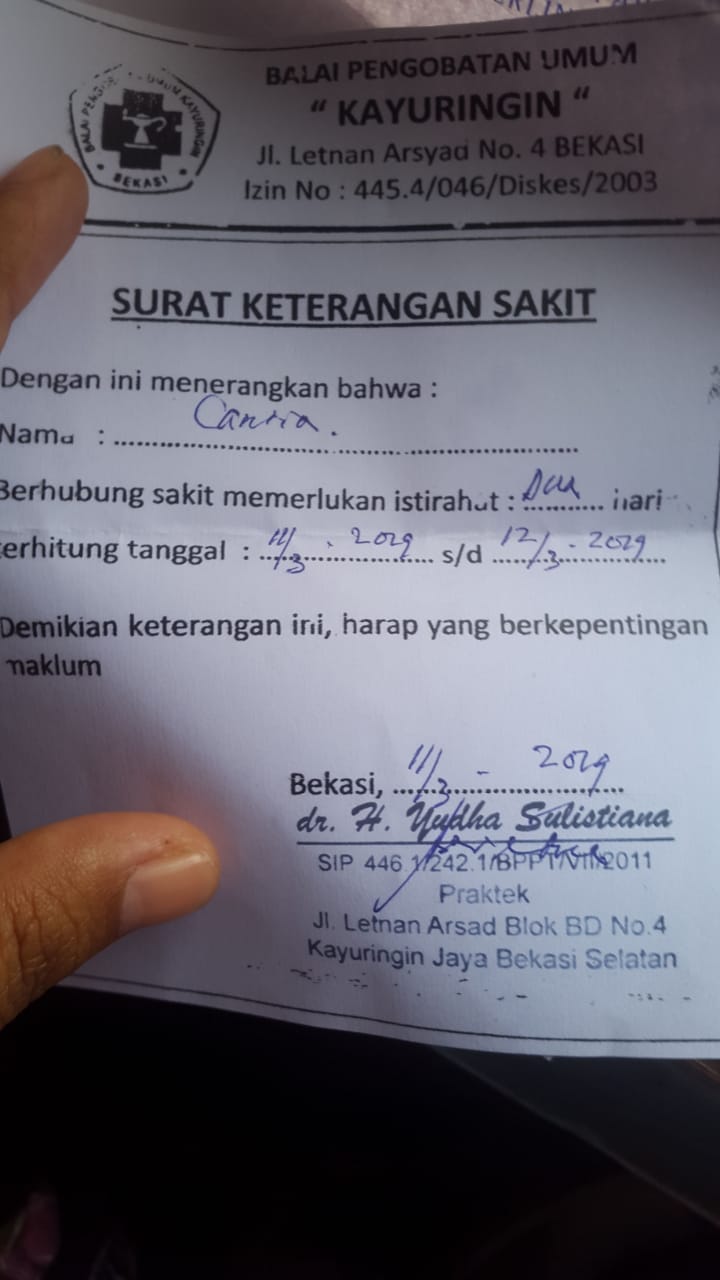 BALAI PENGOBATAN UMUM
“ KAYURINGIN “
Jl. Letnan Arsyad No. 4 BEKASI
Izin No : 445.4/046/Diskes/2003
UMUM KAYURINGIN
BEKASI
SURAT KETERANGAN SAKIT
Dengan ini menerangkan bahwa :
Nama :
Berhubung sakit memerlukan istirahat : Dua hari
terhitung tanggal : 11/3 - 2029 s/d 12/3 - 2029
Demikian keterangan ini, harap yang berkepentingan
maklum
Bekasi, 11/3 - 2029
dr. H. Yudha Sulistiana
SIP 446.1/242.1/BPPT/VII/2011
Praktek
Jl. Letnan Arsad Blok BD No.4
Kayuringin Jaya Bekasi Selatan